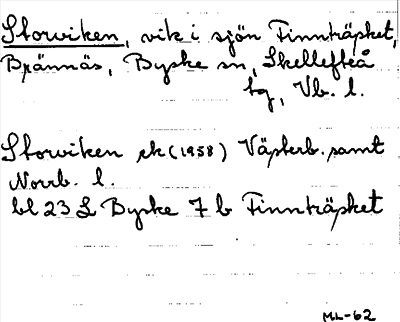 Storviken, vik i sjön Finnträsket,
Brännäs, Byske sn, Skellefteå
tg, Vb. l.
Storviken ek (1958) Västerb. samt
Norrb. l.
bl 23 L Byske 7 b Finnträsket
ML-62